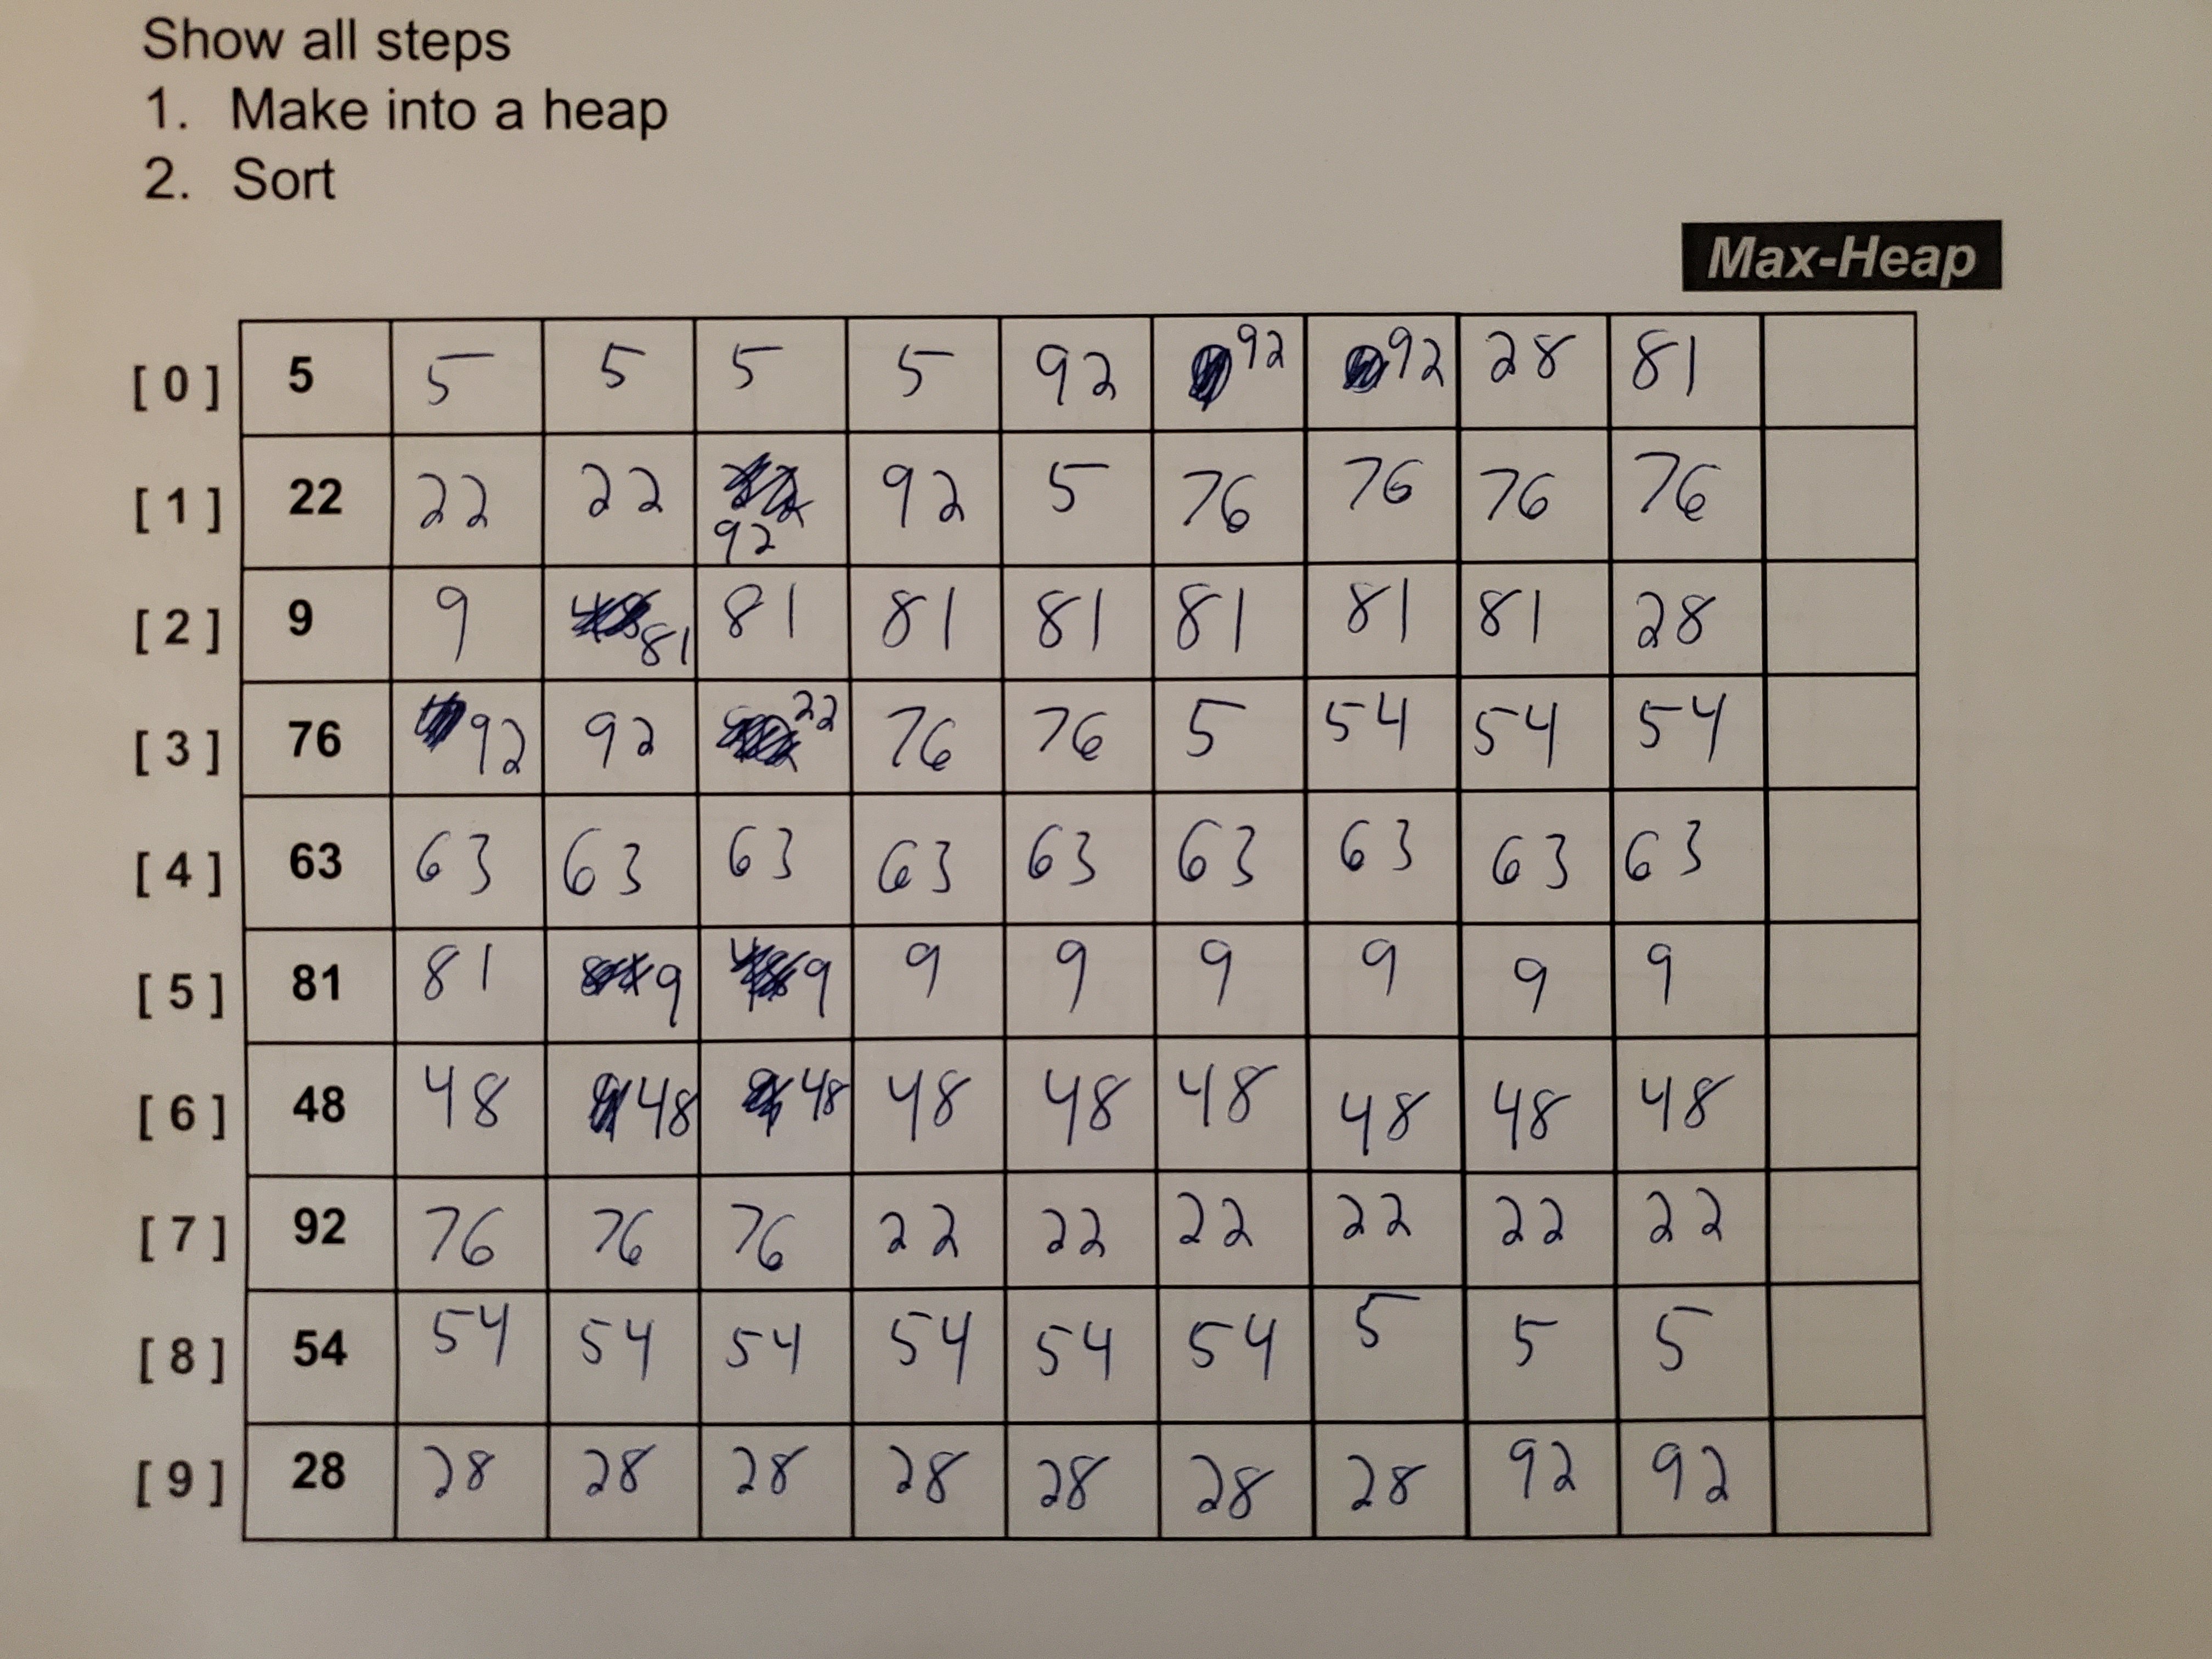 Show all steps
1. Make into a heap
2. Sort
Max-Heap
[ 0 ] 5 5 5 5 5 92 92 92 28 81
[ 1 ] 22 22 22 92 92 5 76 76 76 76
[ 2 ] 9 9 81 81 81 81 81 81 81 28
[ 3 ] 76 92 92 22 76 76 5 54 54 54
[ 4 ] 63 63 63 63 63 63 63 63 63 63
[ 5 ] 81 81 9 9 9 9 9 9 9 9
[ 6 ] 48 48 48 48 48 48 48 48 48 48
[ 7 ] 92 76 76 76 22 22 22 22 22 22
[ 8 ] 54 54 54 54 54 54 54 5 5 5
[ 9 ] 28 28 28 28 28 28 28 28 92 92